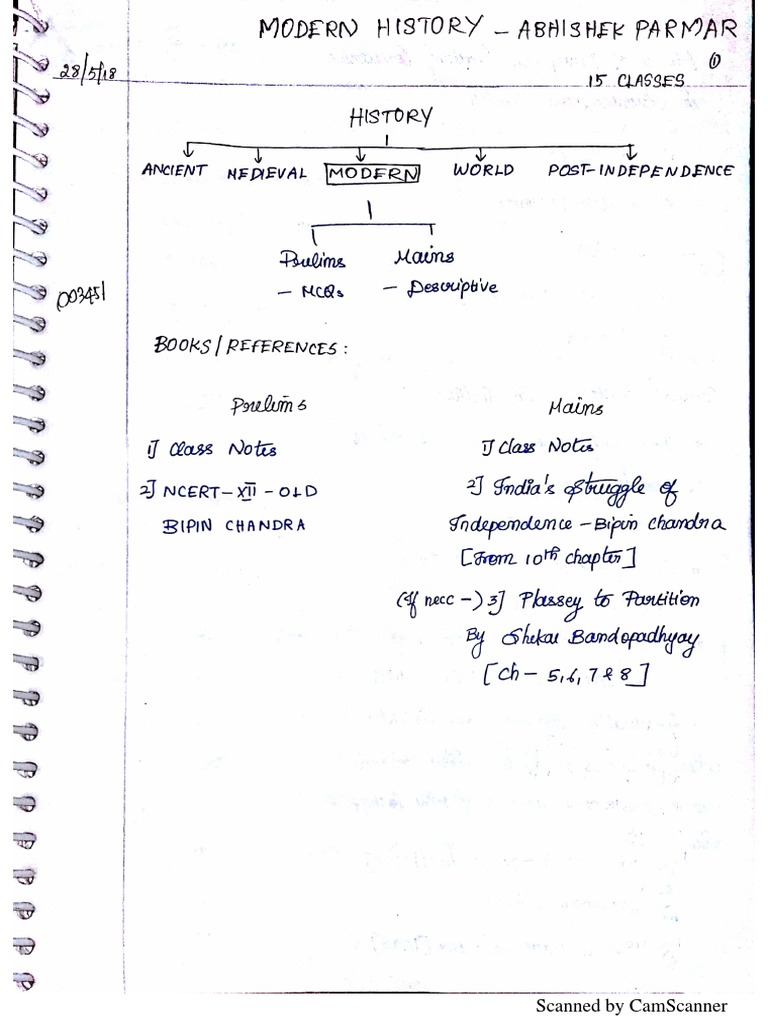 MODERN HISTORY - ABHISHEK PARMAR
①
28/5/18
15 CLASSES
HISTORY
ANCIENT MEDIEVAL MODERN WORLD POST-INDEPENDENCE
Prelims Mains
- MCQs - Descriptive
003451
BOOKS/REFERENCES:
Prelims Mains
1] Class Notes 1] Class Notes
2] NCERT-XII-OLD 2] India's Struggle of
BIPIN CHANDRA Independence - Bipin Chandra
[From 10th chapter]
(If necc -) 3] Plassey to Partition
By Shekar Bandopadhyay
[Ch - 5, 6, 7 & 8]
Scanned by CamScanner